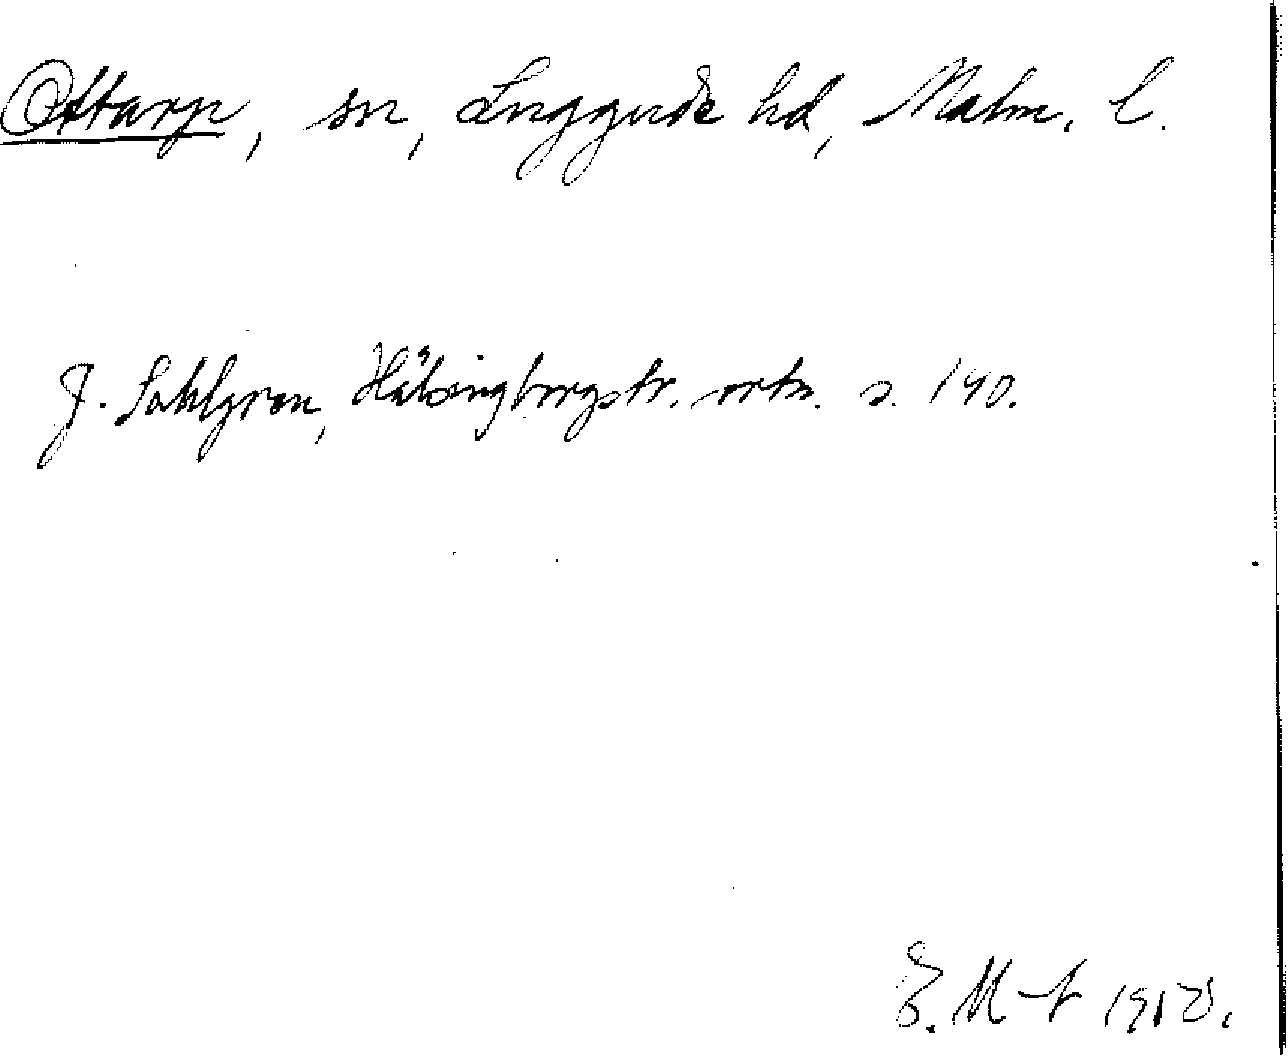 Ottarp, sn, Luggude hd, Malm. l.
J. Sahlgren, Hälsingborgstr. ortn. s. 140.
E. M-t 1918.